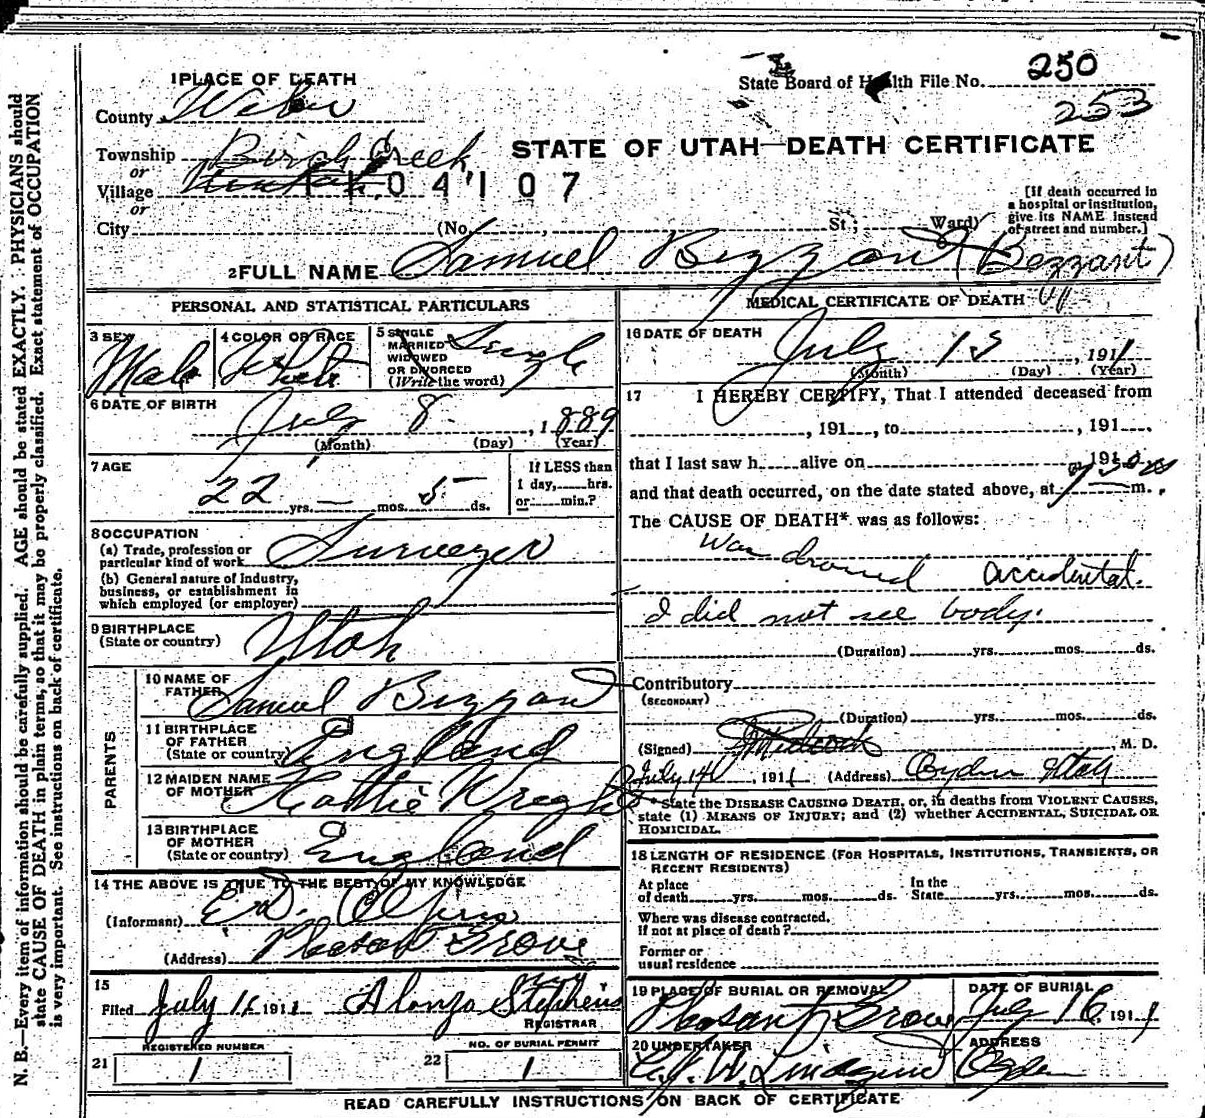 1 PLACE OF DEATH
State Board of Health File No. 250
253
County Weber
STATE OF UTAH—DEATH CERTIFICATE
Township Birch Creek
or
Village
1104107
or
City (No. , St.; Ward)
[If death occurred in a hospital or institution, give its NAME instead of street and number.]
2 FULL NAME Samuel Bezzant (Bezzant)
PERSONAL AND STATISTICAL PARTICULARS
3 SEX Male
4 COLOR OR RACE White
5 SINGLE MARRIED WIDOWED OR DIVORCED (Write the word) Single
6 DATE OF BIRTH July 8 , 1889
(Month) (Day) (Year)
7 AGE 22 yrs. — mos. 5 ds.
If LESS than 1 day, hrs. or min.?
8 OCCUPATION
(a) Trade, profession or particular kind of work Surveyor
(b) General nature of Industry, business, or establishment in which employed (or employer)
9 BIRTHPLACE
(State or country) Utah
PARENTS
10 NAME OF FATHER Samuel Bezzant
11 BIRTHPLACE OF FATHER (State or country) England
12 MAIDEN NAME OF MOTHER
13 BIRTHPLACE OF MOTHER (State or country) England
14 THE ABOVE IS TRUE TO THE BEST OF MY KNOWLEDGE
(Informant) E. D.
(Address) Pleasant Grove
15
Filed July 16 1911 Alonzo Stephens
REGISTRAR
21 REGISTERED NUMBER 1
22 NO. OF BURIAL PERMIT 1
MEDICAL CERTIFICATE OF DEATH
16 DATE OF DEATH July 13 , 1911
(Month) (Day) (Year)
17 I HEREBY CERTIFY, That I attended deceased from
, 191 , to , 191 .
that I last saw h alive on , 191
and that death occurred, on the date stated above, at m.
The CAUSE OF DEATH* was as follows:
Was drowned accidental.
I did not see body.
(Duration) yrs. mos. ds.
Contributory
(SECONDARY)
(Duration) yrs. mos. ds.
(Signed) , M. D.
July 14 , 1911 (Address) Ogden Utah
* State the DISEASE CAUSING DEATH, or, in deaths from VIOLENT CAUSES,
state (1) MEANS OF INJURY; and (2) whether ACCIDENTAL, SUICIDAL OR
HOMICIDAL.
18 LENGTH OF RESIDENCE (FOR HOSPITALS, INSTITUTIONS, TRANSIENTS, OR
RECENT RESIDENTS)
At place of death yrs. mos. ds. In the State yrs. mos. ds.
Where was disease contracted, if not at place of death?
Former or usual residence
19 PLACE OF BURIAL OR REMOVAL Pleasant Grove
DATE OF BURIAL July 16, 1911
20 UNDERTAKER
ADDRESS Ogden
READ CAREFULLY INSTRUCTIONS ON BACK OF CERTIFICATE
N. B.—Every item of information should be carefully supplied. AGE should be stated EXACTLY. PHYSICIANS should
state CAUSE OF DEATH in plain terms, so that it may be properly classified. Exact statement of OCCUPATION
is very important. See instructions on back of certificate.